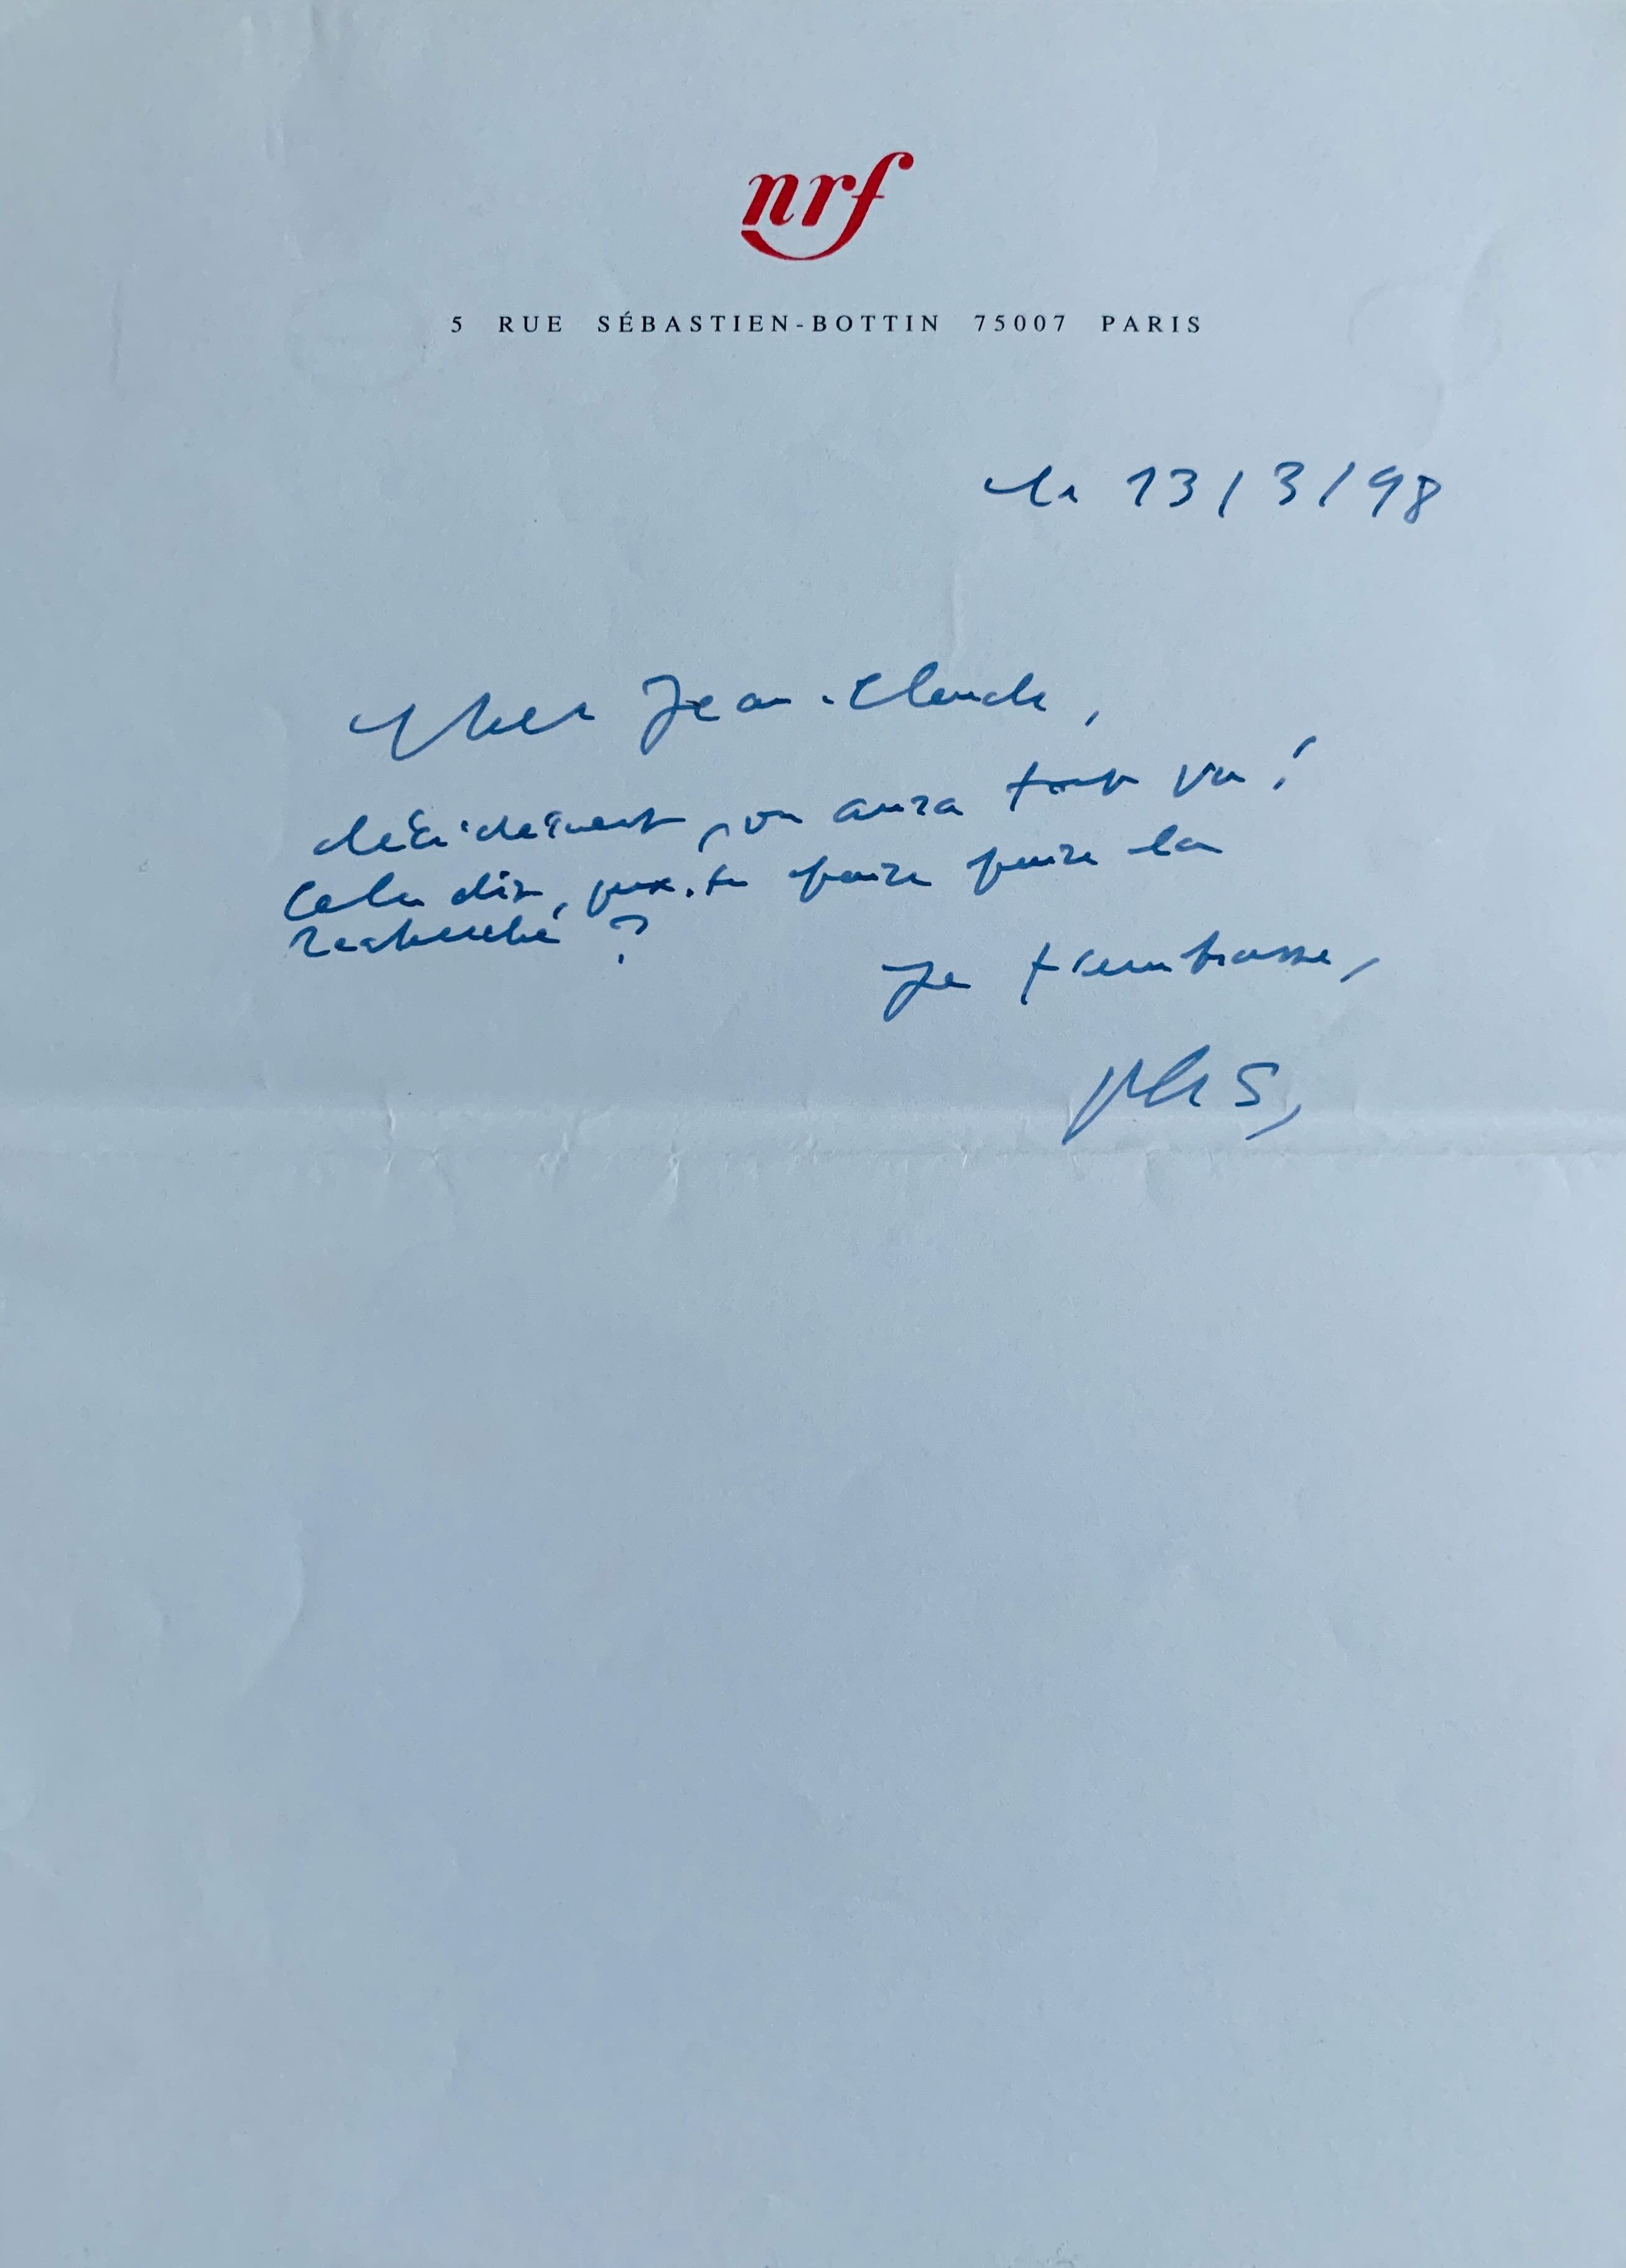 nrf
5 RUE SÉBASTIEN-BOTTIN 75007 PARIS
le 13/3/98
Cher Jean-Claude,
décidément, on aura tout vu !
Cela dit, peux-tu faire faire la
recherche ?
Je t'embrasse,
Ph S,